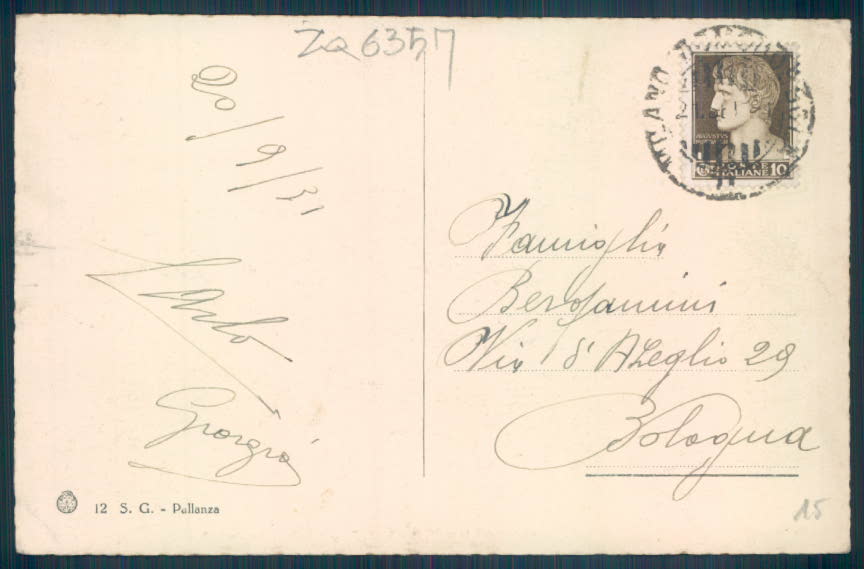 Za 6357
20/9/31
Carlo
Giorgio
12 S. G. - Pallanza
MILANO
AUGUSTUS
POSTE
ITALIANE 10
Famiglia
Bergamini
Via d'Azeglio 29
Bologna
15